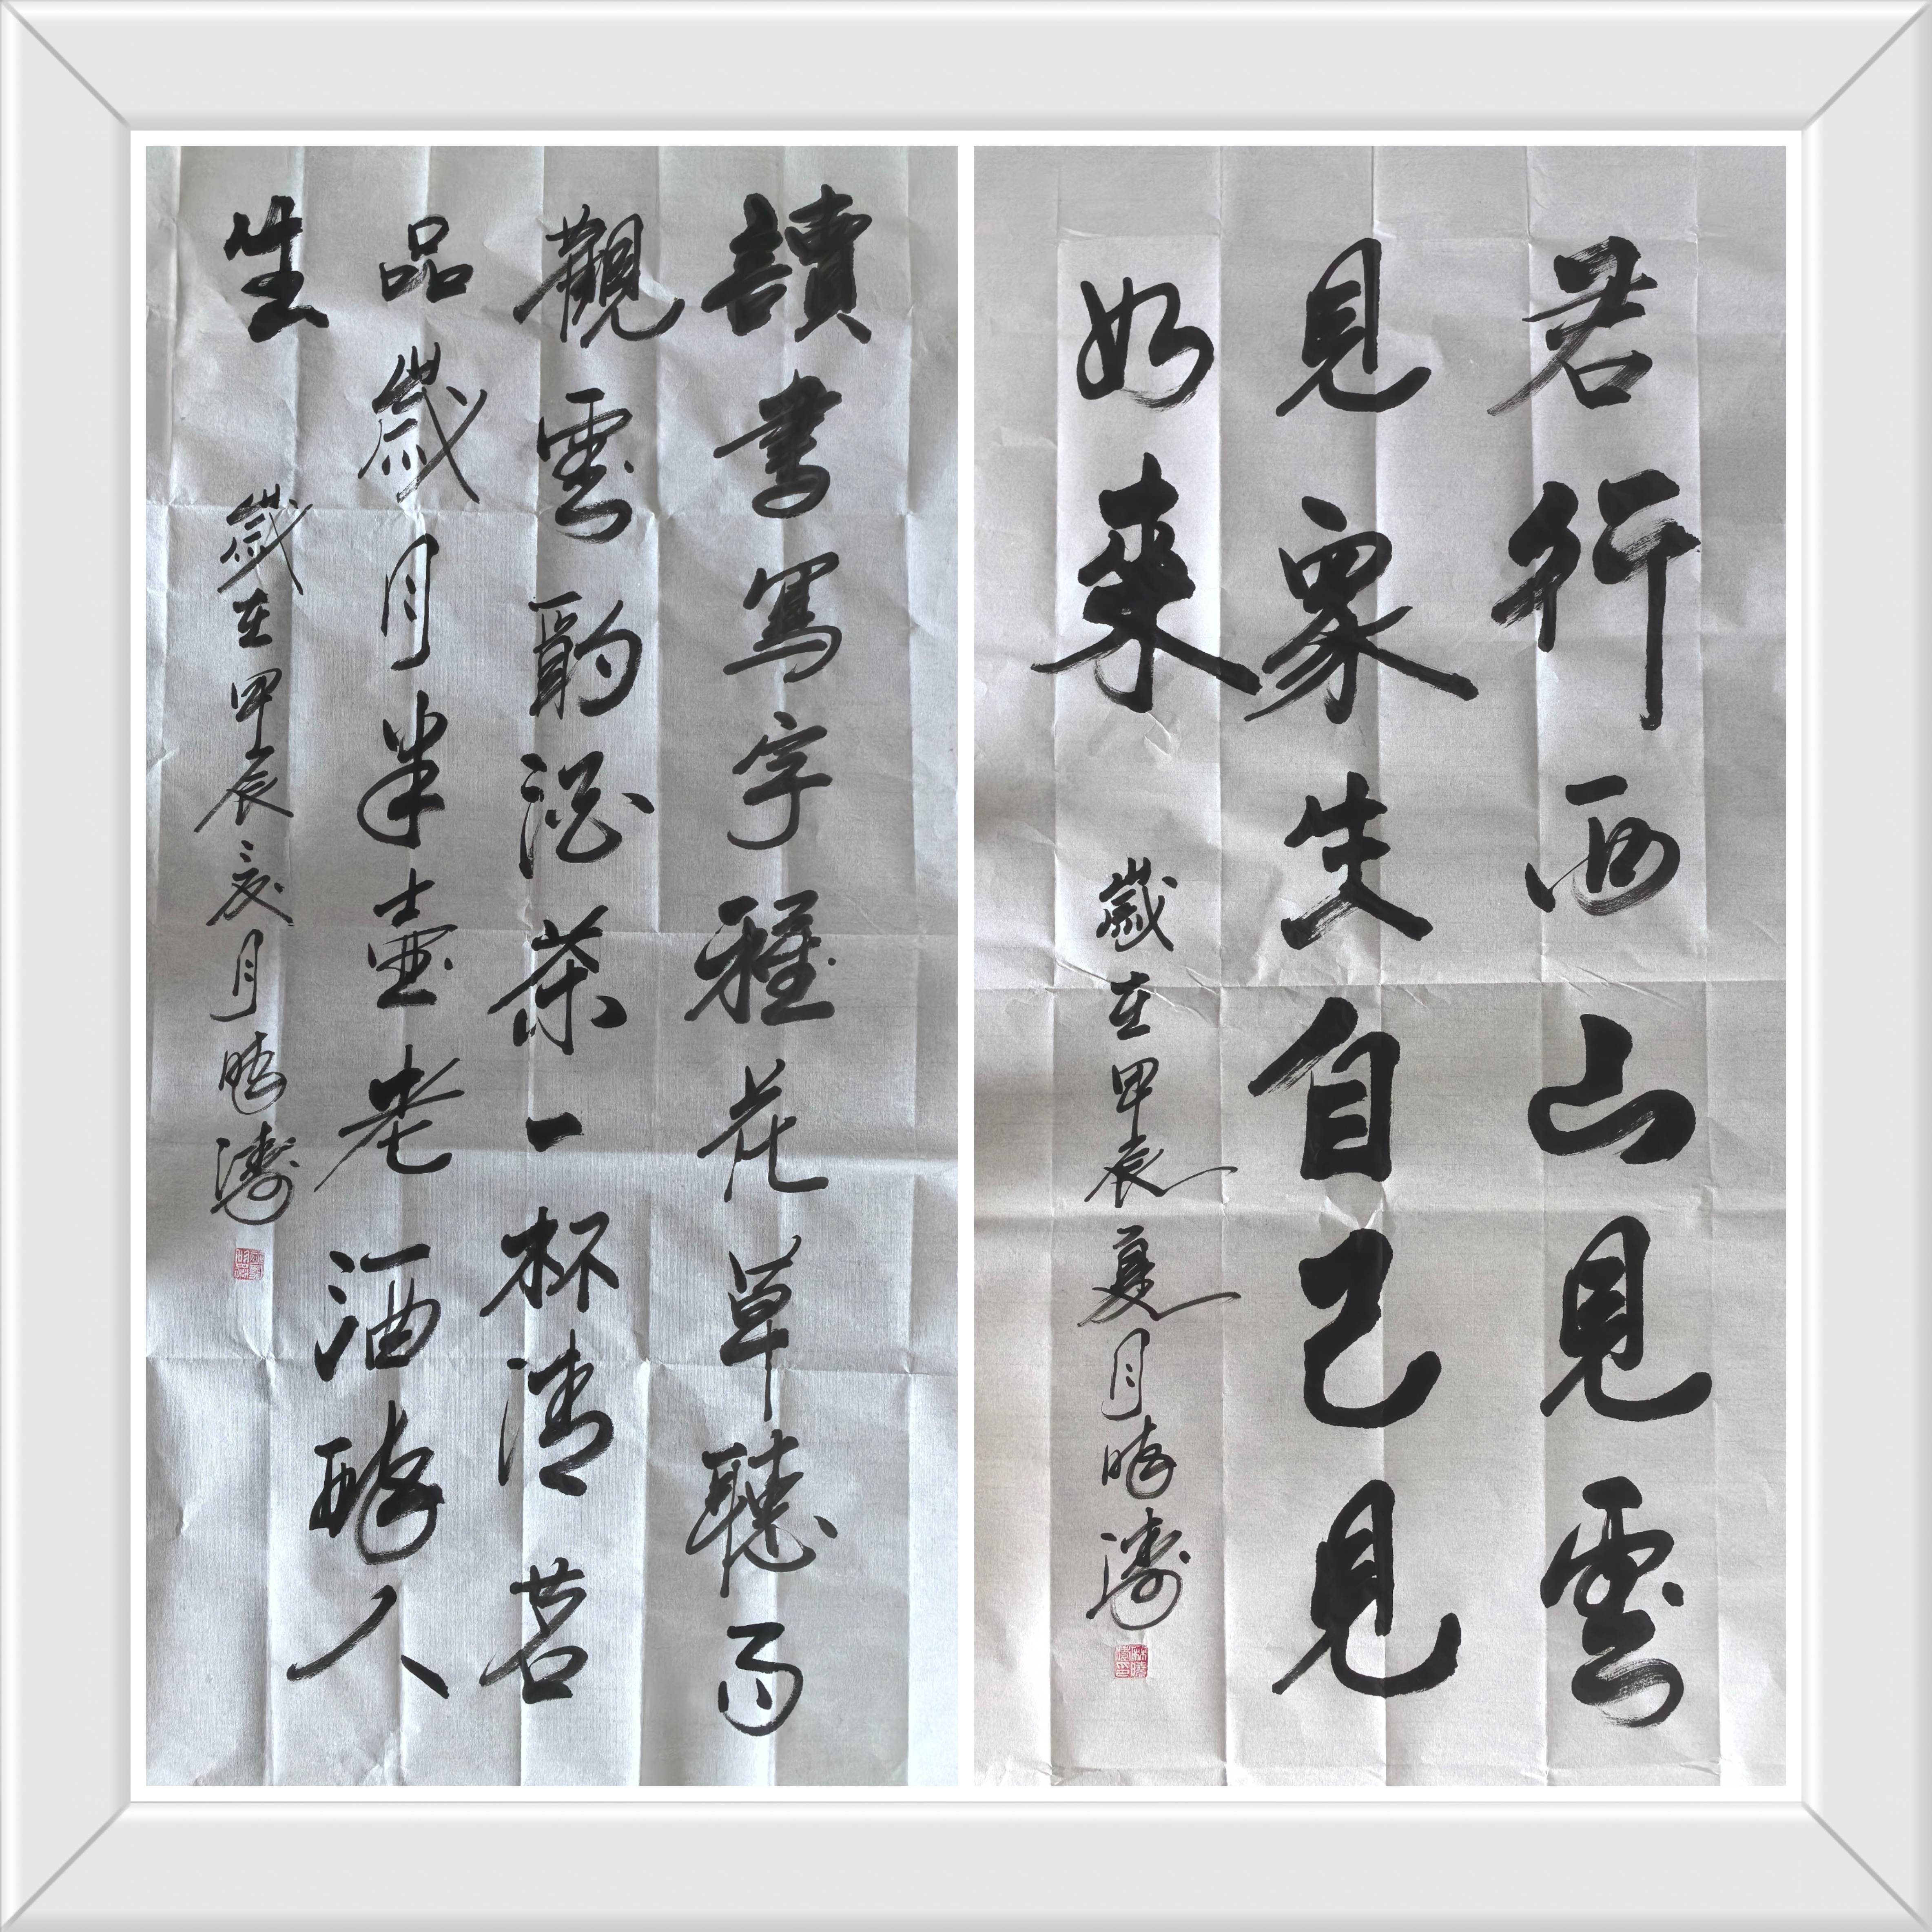 若行西山見雲
見衆生自己見
如來
歲在甲辰夏月曉濤
讀書寫字種花草聽雨
觀雲酌酒茶一杯清茗
品歲月半壺老酒醉人
生
歲在甲辰夏月曉濤